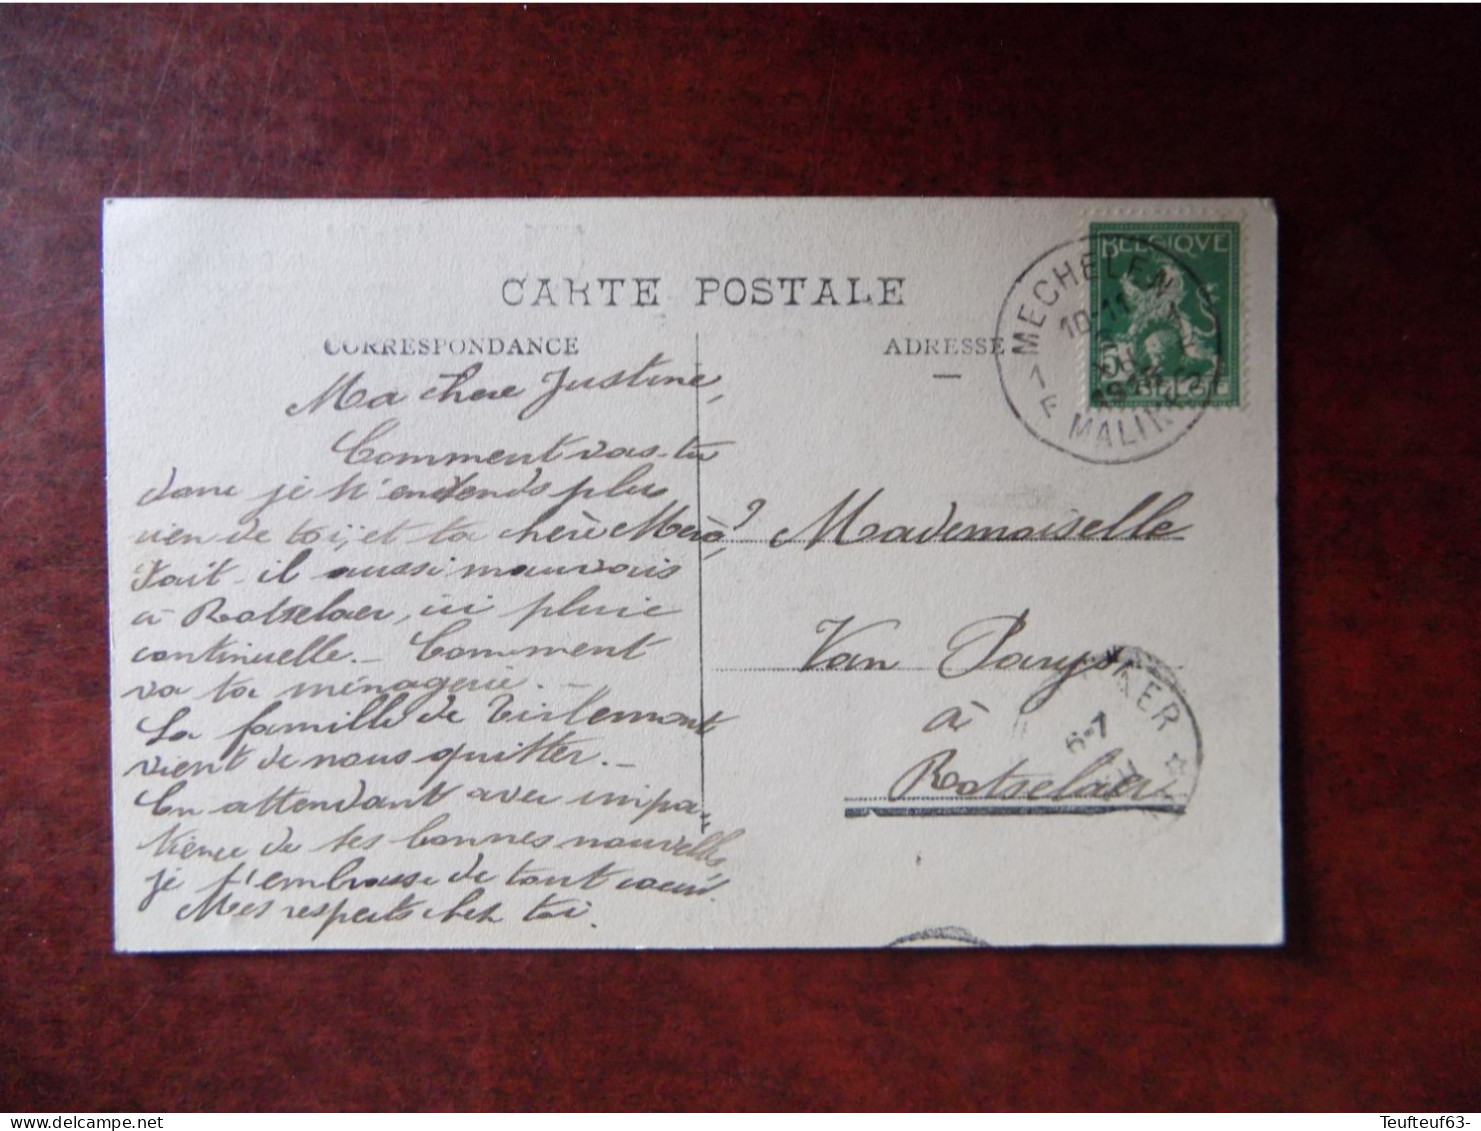 CARTE POSTALE
CORRESPONDANCE
ADRESSE
BELGIQUE
5
BELGIË
MECHELEN
10-11
1F MALINES 1F
Ma chere Justine,
Comment vas-tu
donc je n'entends plus
rien de toi, et ta chère Mère?
Fait-il aussi mauvais
à Rotselaer, ici pluie
continuelle. - Comment
va ta ménagerie. -
La famille de Tirlemont
vient de nous quitter. -
En attendant avec impa-
tience de tes bonnes nouvelles
je t'embrasse de tout coeur.
Mes respects chez toi.
Mademoiselle
Van
à
Rotselaer
6-7
Teufteuf63-